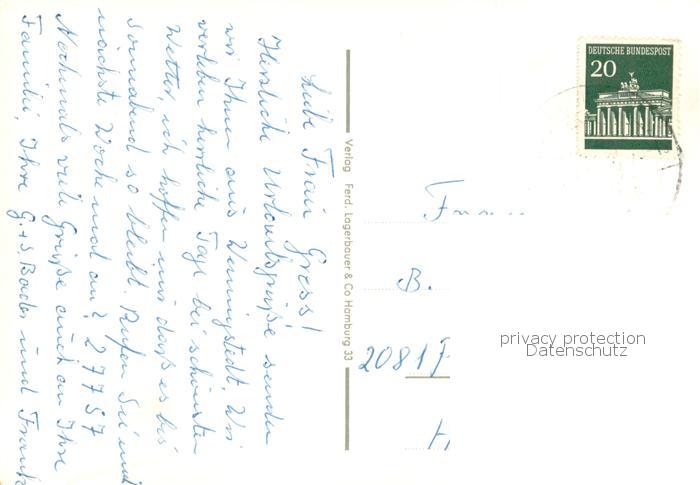 Liebe Frau Gross!
Herzliche Urlaubsgrüße senden
wir Ihnen aus Wenningstedt. Wir
verleben herrliche Tage bei schönsten
Wetter, ich hoffe nur daß es bis
Sonnabend so bleibt. Rufen Sie mal
nächste Woche mal an? 27757
Nochmals viele Grüße auch an Ihre
Familie, Ihre G.+S. Bader und Frank
Verlag Ferd. Lagerbauer & Co Hamburg 33
DEUTSCHE BUNDESPOST
20
B.
2081
privacy protection
Datenschutz